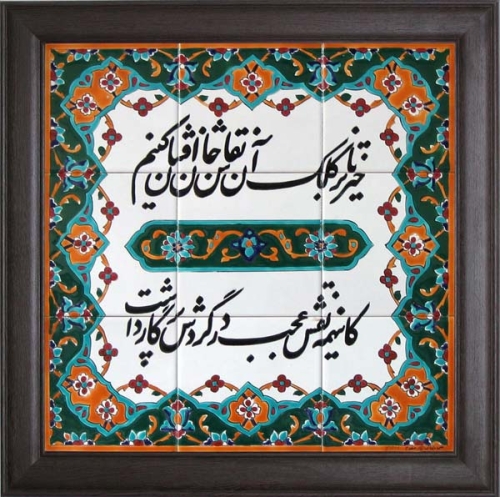 خیز تا بر کلک آن نقاش جان افشان کنیم
کاینهمه نقش عجب در گردش پرگار داشت